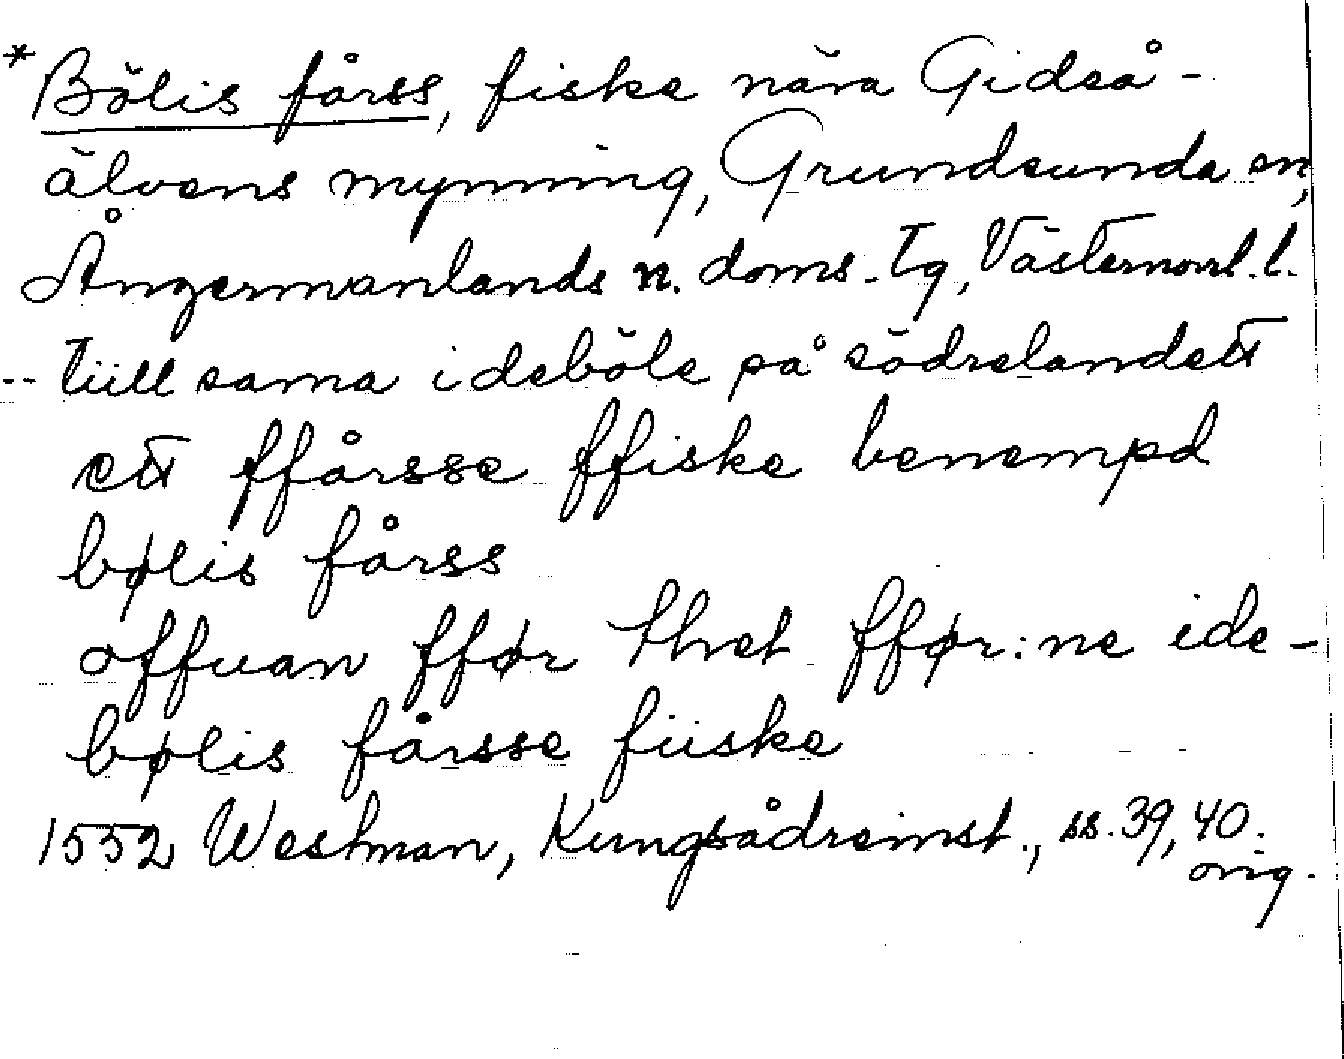 *Bölis fårss, fiske nära Gideå-
älvens mynning, Grundsunda sn,
Ångermanlands n. doms. tg, Västernorrl. l.
-- tiill sama idebőle på södrelandett
ett ffårsse ffiske benempd
bølis fårss
offuan fför thet fför:ne ide-
bølis fårsse fiiske
1552 Westman, Kungsådreinst., ss. 39, 40.
orig.